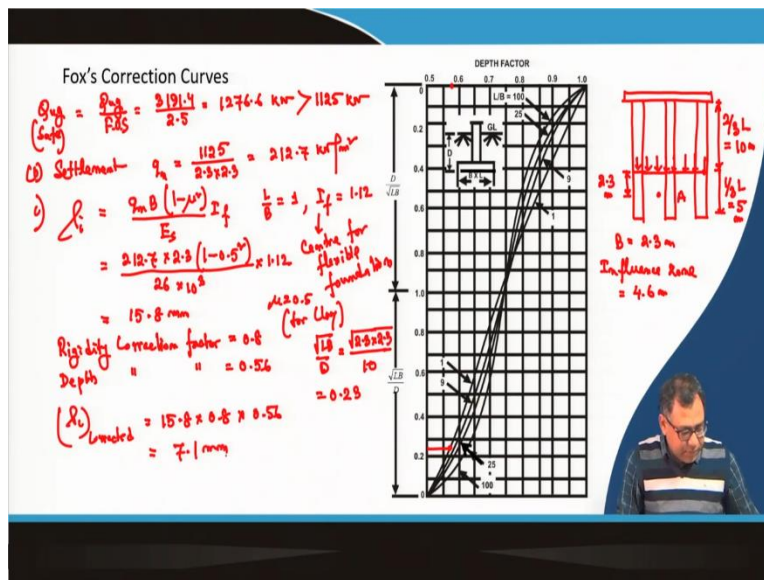 Fox's Correction Curves
Qug = Qug/F.O.S = 3191.4/2.5 = 1276.6 kN > 1125 kN
(Safe)
(b) Settlement qn = 1125/(2.3×2.3) = 212.7 kN/m²
i) Si = qn B (1-μ²)/Es If
L/B = 1, If = 1.12
↓
Centre for
flexible
foundation
= 212.7 × 2.3 (1-0.5²)/(26 × 10³) × 1.12
= 15.8 mm
μ=0.5
(for Clay)
Rigidity Correction factor = 0.8
Depth " " = 0.56
√LB/D = √2.3×2.3/10
= 0.23
(Si)corrected = 15.8 × 0.8 × 0.56
= 7.1 mm
DEPTH FACTOR
0.5 0.6 0.7 0.8 0.9 1.0
0
0.2
0.4
0.6
0.8
1.0
0.8
0.6
0.4
0.2
0
D/√LB
√LB/D
L/B = 100
25
9
1
GL
D
B X L
1
9
25
100
2/3 L
= 10 m
2.3
m
A
1/3 L
= 5
m
B = 2.3 m
Influence zone
= 4.6 m